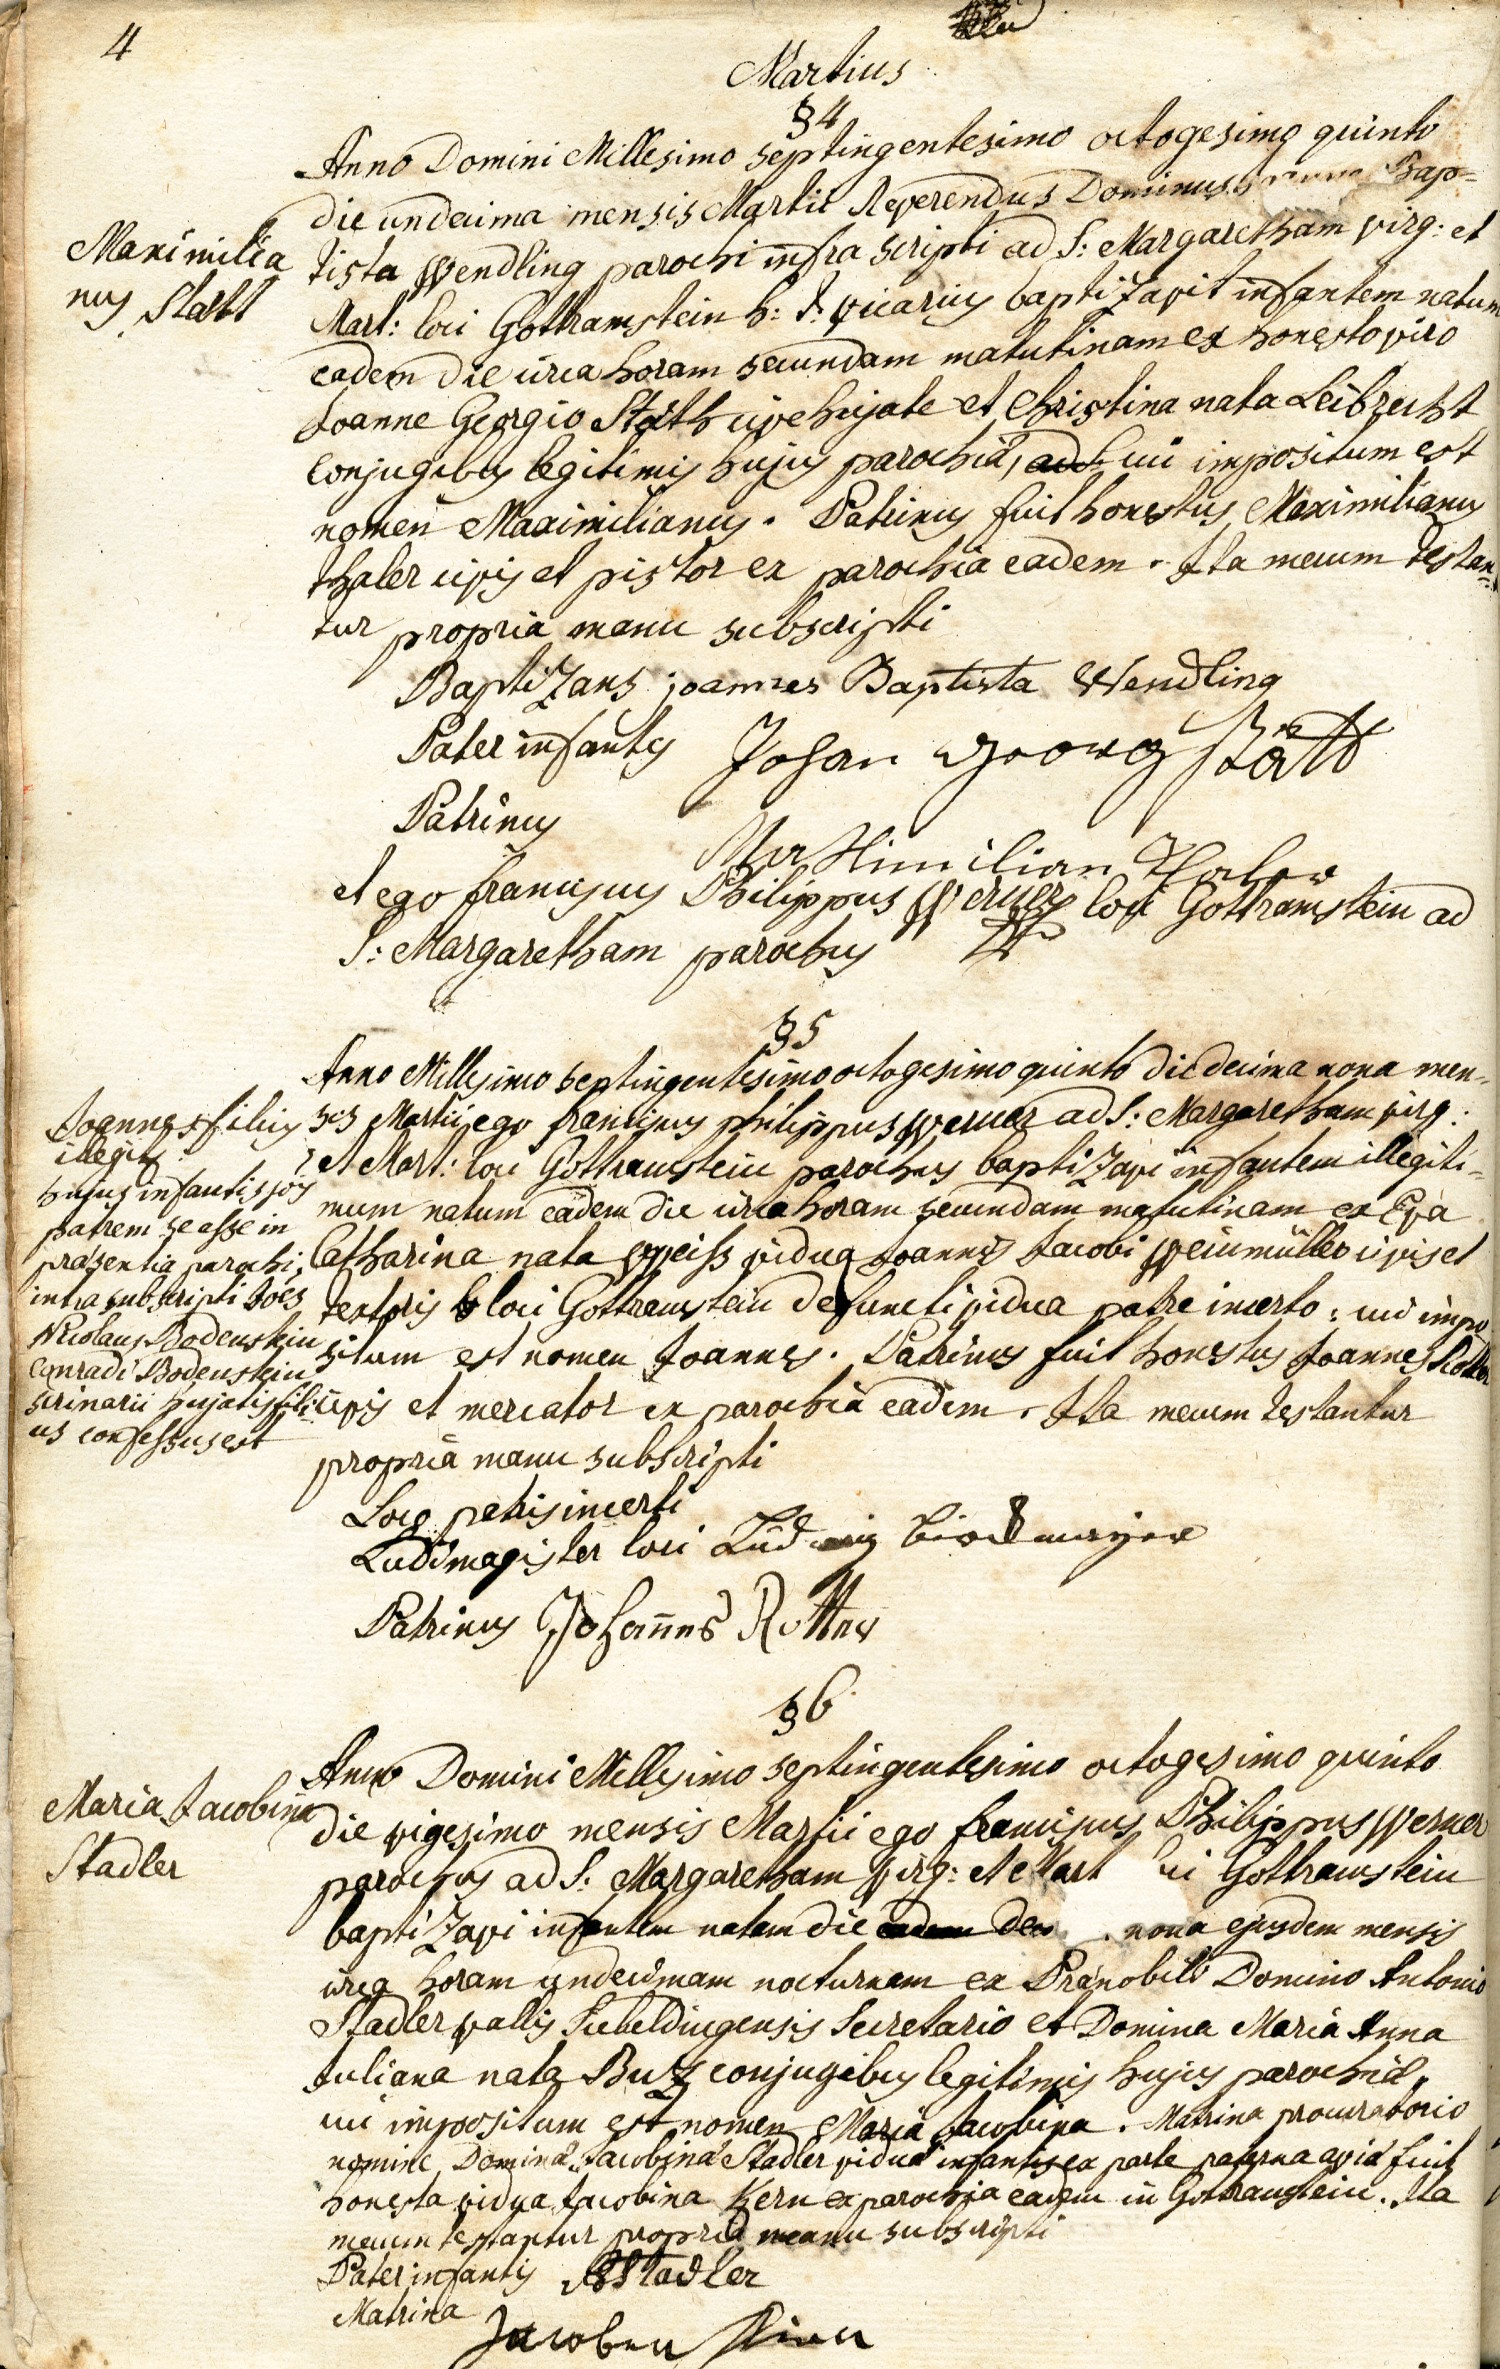 4
Martius
§ 4
Anno Domini Millesimo septingentesimo octogesimo quinto
die undecima mensis Martii Reverendus Dominus Bap=
tista Wendling parochi infra scripti ad S: Margaretham virg: et
Mart: loci Gottramstein h: t: vicarius baptizavit infantem natum
eadem die circa horam secundam matutinam ex honesto viro
Joanne Georgio Stath cive hujate et Christina nata Leibrecht
conjugibus legitimis hujus parochiæ, cui impositum est
nomen Maximilianus. Patrinus fuit honestus Maximilianus
Thaler civis et pistor ex parochia eadem. Ita mecum testan=
tur propria manu subscripti
Baptizans joannes Baptista Wendling
Pater infantis Johan Georg Stätt
Patrinus
Maximilian Thaler
et ego franciscus Philippus Werner loci Gottramstein ad
S: Margaretham parochus
Maximilia
nus Statt
§ 5
Anno Millesimo septingentesimo octogesimo quinto die decima nona men=
sis Martii ego franciscus philippus Werner ad S: Margaretham virg:
et Mart: loci Gottramstein parochus baptizavi infantem illegiti=
mum natum eadem die circa horam secundam matutinam ex Eva
Catharina nata Weiss vidua Joannis Jacobi Weinmüller civis et
textoris loci Gottramstein defuncti vidua patre incerto: cui impo
situm est nomen Joannes. Patrinus fuit honestus Joannes Rottner
civis et mercator ex parochia eadem. Ita mecum testantur
propria manu subscripti
Loco patris incerti
Ludimagister loci Ludwig
Patrinus Johannes Rottner
Joannes filius
illegit:
hujus infantis
patrem se esse in
præsentia parochi
infra subscripti Joes
Nicolaus Bodenstein
Conradi Bodenstein
scrinarii hujatis fili
us confessus est
§ 6
Anno Domini Millesimo septingentesimo octogesimo quinto
die vigesimo mensis Martii ego franciscus Philippus Werner
parochus ad S: Margaretham Virg: et Mart Gottramstein
baptizavi infantem natam die nona ejusdem mensis
circa horam undecimam nocturnam ex Prænobili Domino Antonio
Stadler vallis Siebeldingensis Secretario et Domina Maria Anna
Juliana nata Buz conjugibus legitimis hujus parochiæ,
cui impositum est nomen Maria Jacobina. Matrina procuratorio
nomine Dominæ Jacobinæ Stadler viduæ infantis ex parte paterna aviæ fuit
honesta vidua Jacobina Kern ex parochia eadem in Gottramstein. Ita
mecum testantur propria manu subscripti
Pater infantis Stadler
Matrina
Maria Jacobina
Stadler